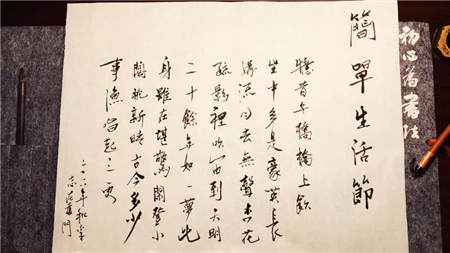 簡單生活節
憶昔午橋橋上飲
坐中多是豪英長
溝流月去無聲杏花
疏影裡吹笛到天明
二十餘年如一夢此
身雖在堪驚閒登小
閣眺新晴古今多少
事漁唱起三更
二〇一八年秋
初心書法